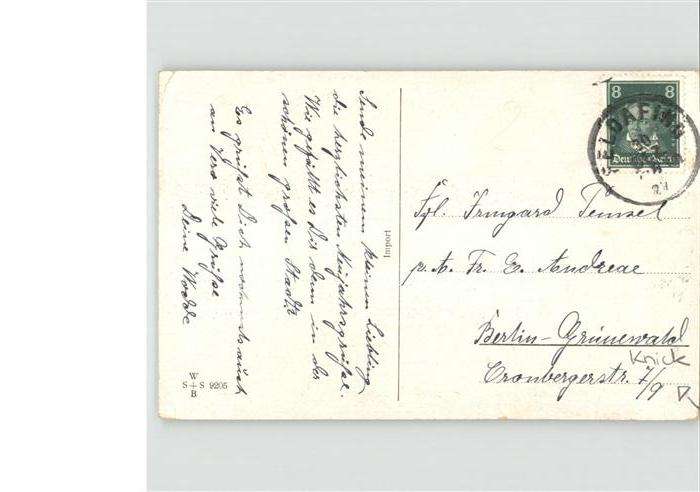 Sende meinem kleinen Liebling
die herzlichsten Neujahrsgrüße.
Wie gefällt es Dir denn in der
schönen großen Stadt?
Es grüßt Dich nochmals auch
an Vera viele Grüße
Deine
Import
W
S + S 9205
B
8 8
Deutsches Reich
FELDAFING
Frl. Irmgard Temsel
p. A. Fr. E. Andreae
Berlin-Grunewald
Cronbergerstr. 7/9
Knick